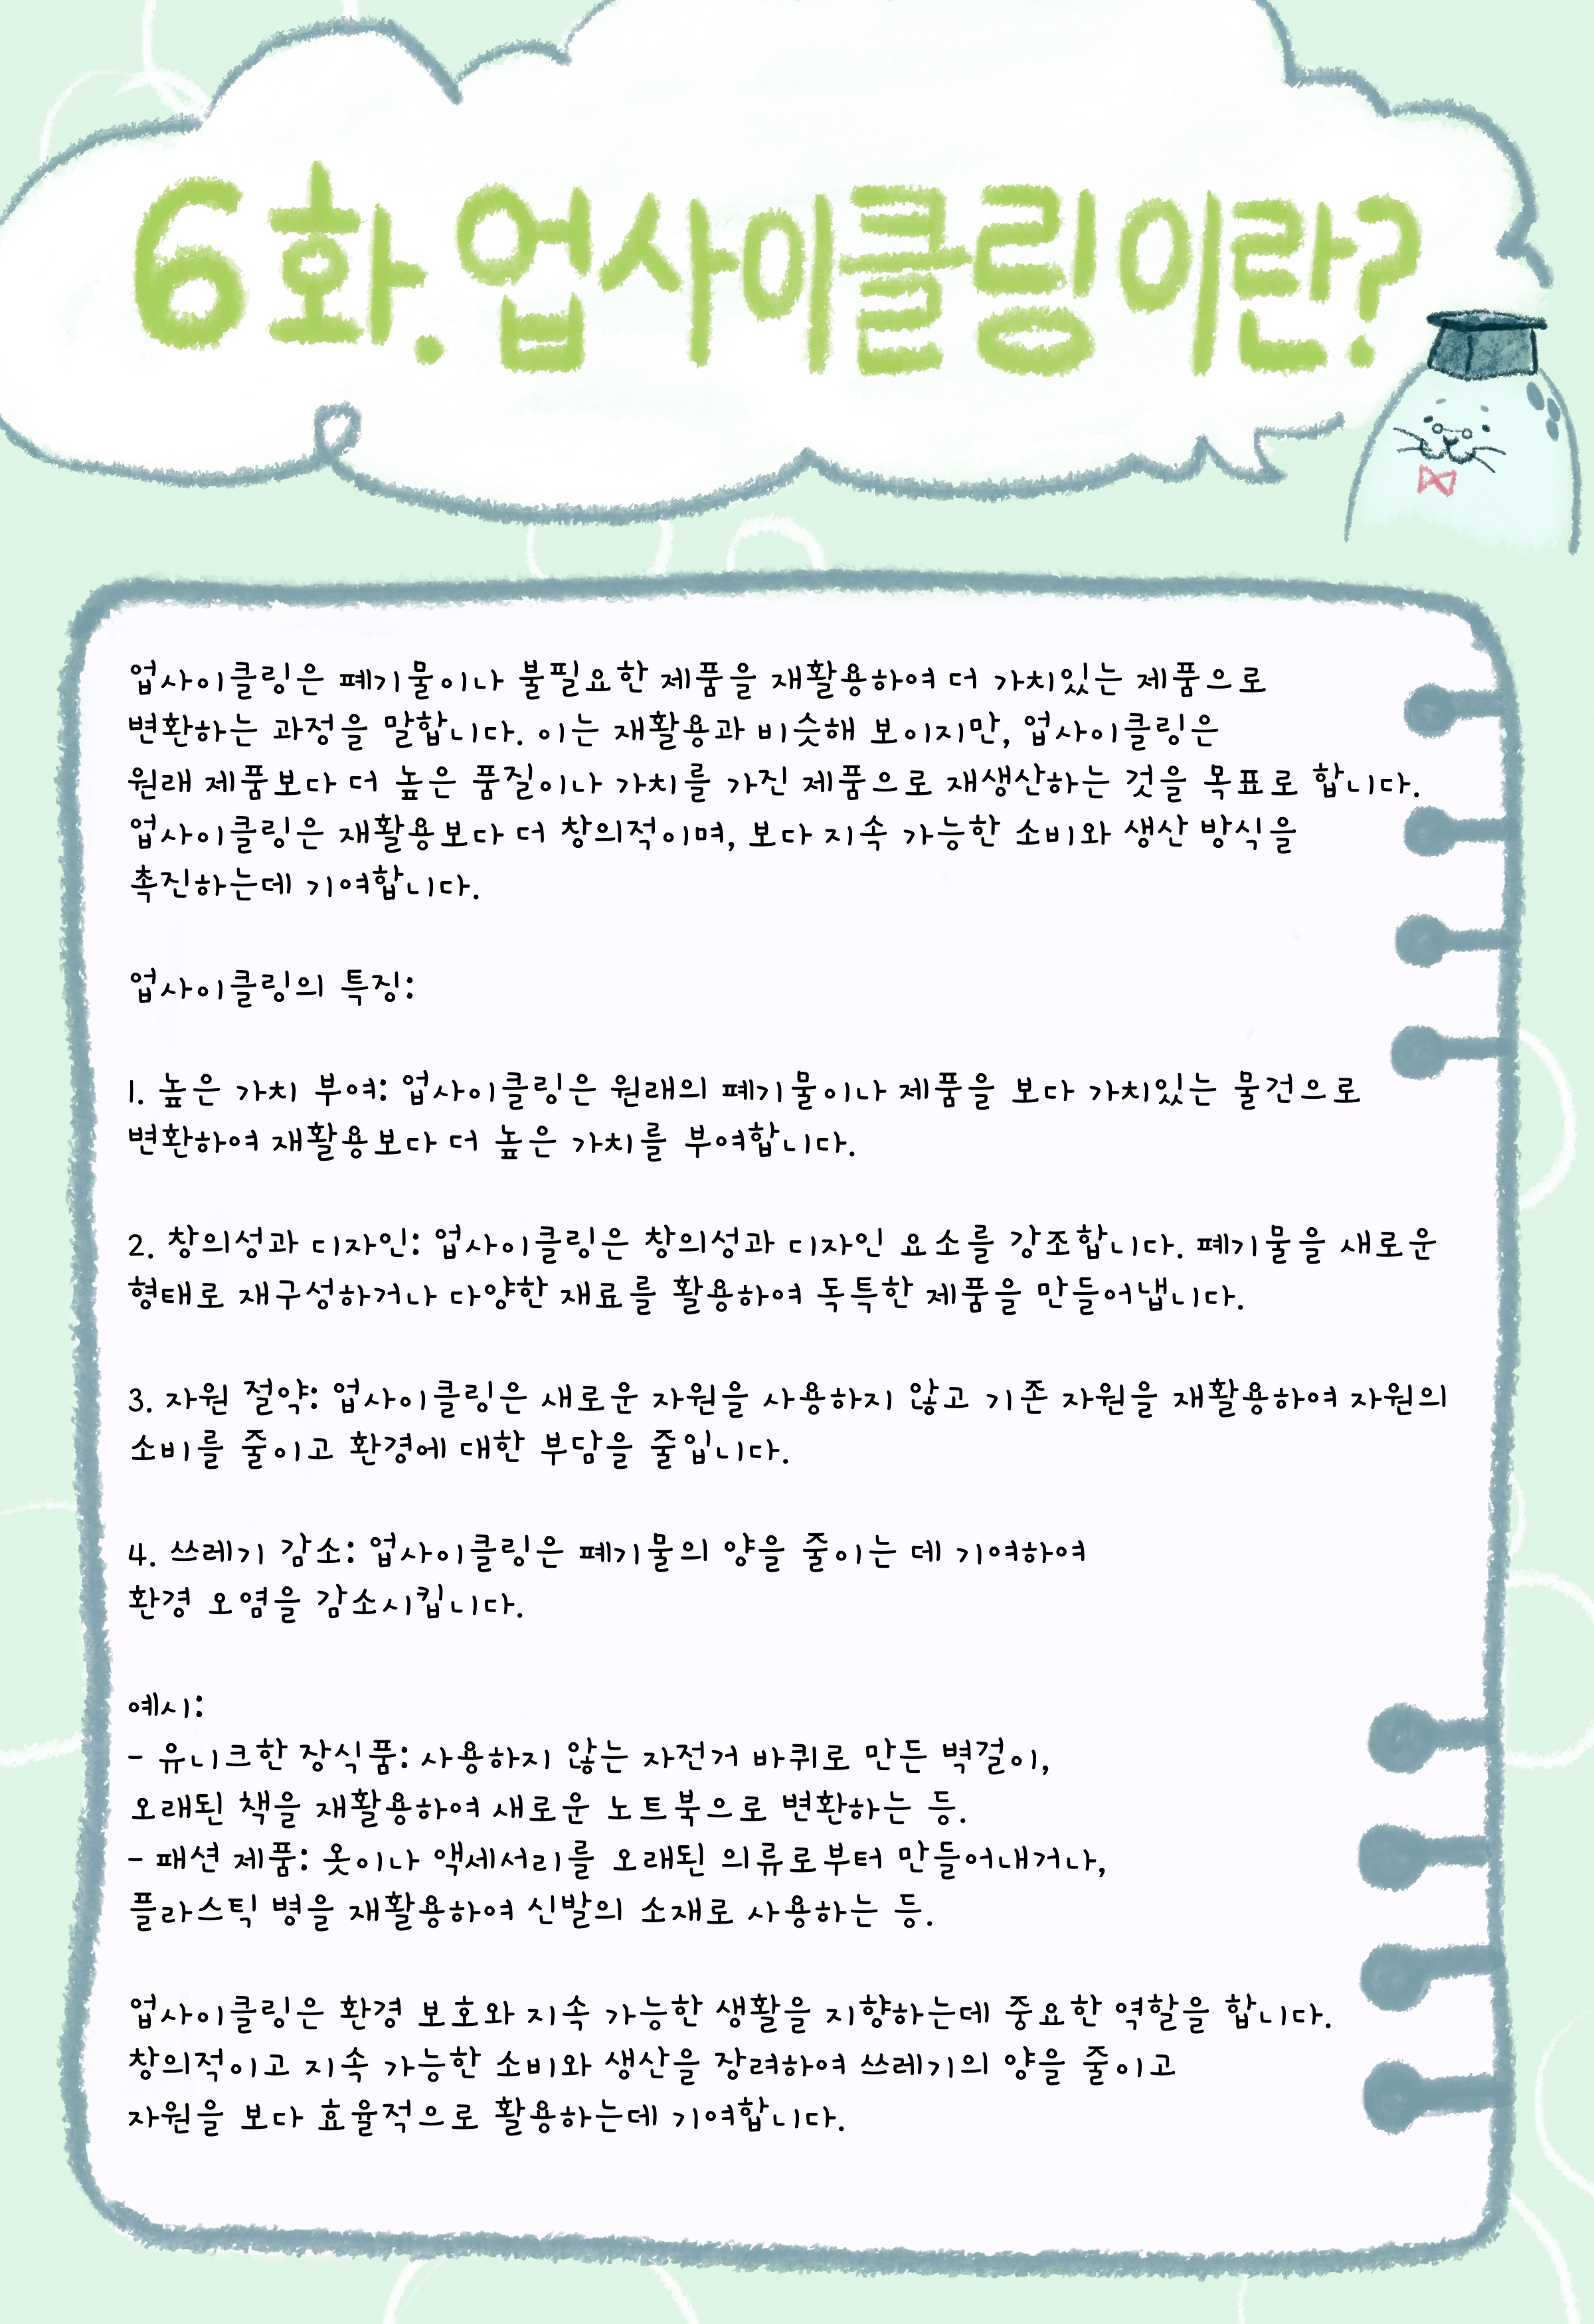 6화. 업사이클링이란?
업사이클링은 폐기물이나 불필요한 제품을 재활용하여 더 가치있는 제품으로
변환하는 과정을 말합니다. 이는 재활용과 비슷해 보이지만, 업사이클링은
원래 제품보다 더 높은 품질이나 가치를 가진 제품으로 재생산하는 것을 목표로 합니다.
업사이클링은 재활용보다 더 창의적이며, 보다 지속 가능한 소비와 생산 방식을
촉진하는데 기여합니다.
업사이클링의 특징:
1. 높은 가치 부여: 업사이클링은 원래의 폐기물이나 제품을 보다 가치있는 물건으로
변환하여 재활용보다 더 높은 가치를 부여합니다.
2. 창의성과 디자인: 업사이클링은 창의성과 디자인 요소를 강조합니다. 폐기물을 새로운
형태로 재구성하거나 다양한 재료를 활용하여 독특한 제품을 만들어냅니다.
3. 자원 절약: 업사이클링은 새로운 자원을 사용하지 않고 기존 자원을 재활용하여 자원의
소비를 줄이고 환경에 대한 부담을 줄입니다.
4. 쓰레기 감소: 업사이클링은 폐기물의 양을 줄이는 데 기여하여
환경 오염을 감소시킵니다.
예시:
- 유니크한 장식품: 사용하지 않는 자전거 바퀴로 만든 벽걸이,
오래된 책을 재활용하여 새로운 노트북으로 변환하는 등.
- 패션 제품: 옷이나 액세서리를 오래된 의류로부터 만들어내거나,
플라스틱 병을 재활용하여 신발의 소재로 사용하는 등.
업사이클링은 환경 보호와 지속 가능한 생활을 지향하는데 중요한 역할을 합니다.
창의적이고 지속 가능한 소비와 생산을 장려하여 쓰레기의 양을 줄이고
자원을 보다 효율적으로 활용하는데 기여합니다.